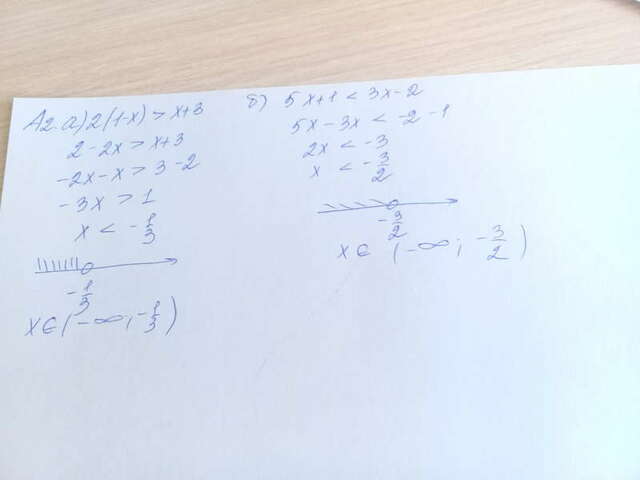 А2. а) 2(1-x) > x+3
2-2x > x+3
-2x-x > 3-2
-3x > 1
x < -1/3
-1/3
x∈(-∞; -1/3)
б) 5x+1 < 3x-2
5x-3x < -2-1
2x < -3
x < -3/2
-3/2
x∈ (-∞; -3/2)